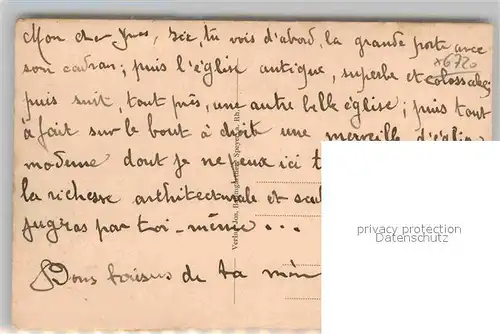 Mon cher Yves, Ici, tu vois d'abord la grande porte avec
son cadran; puis l'église antique, superbe et colossale;
x6720
puis suit, tout près, une autre belle église; puis tout
à fait sur le bout à droite une merveille d'église
moderne dont je ne peux ici t
la richesse architecturale et scul
jugeras par toi-même...
Doux baisers de ta
Verlag Jos. Speyer a. Rh.
privacy protection
Datenschutz